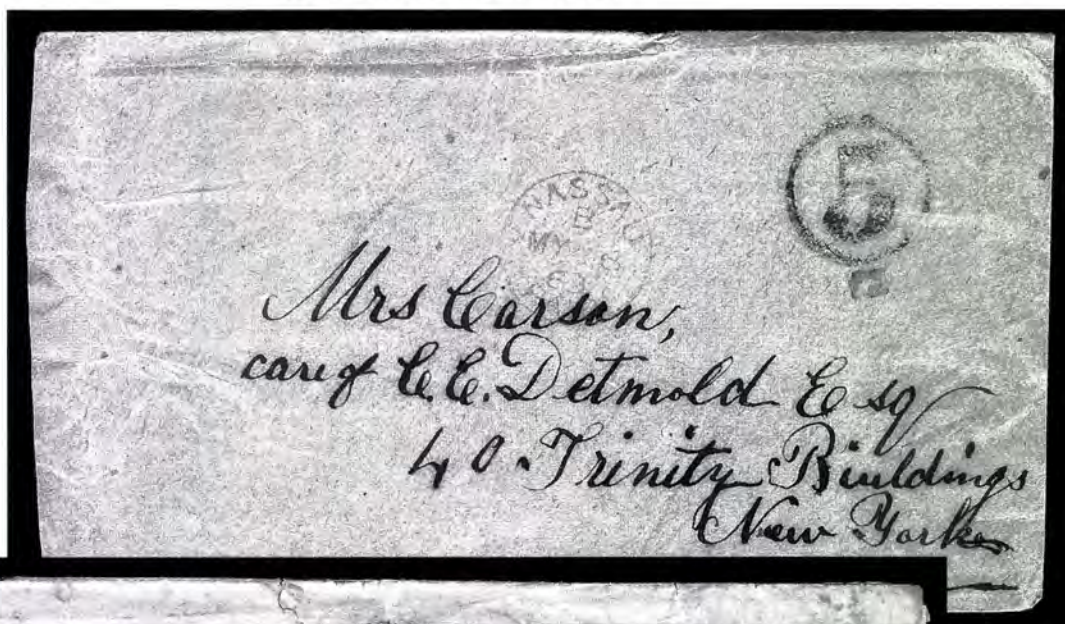 5
NASSAU
B
MY 8
Mrs Carson,
care of C. E. Detmold Esq
40 Trinity Buildings
New York